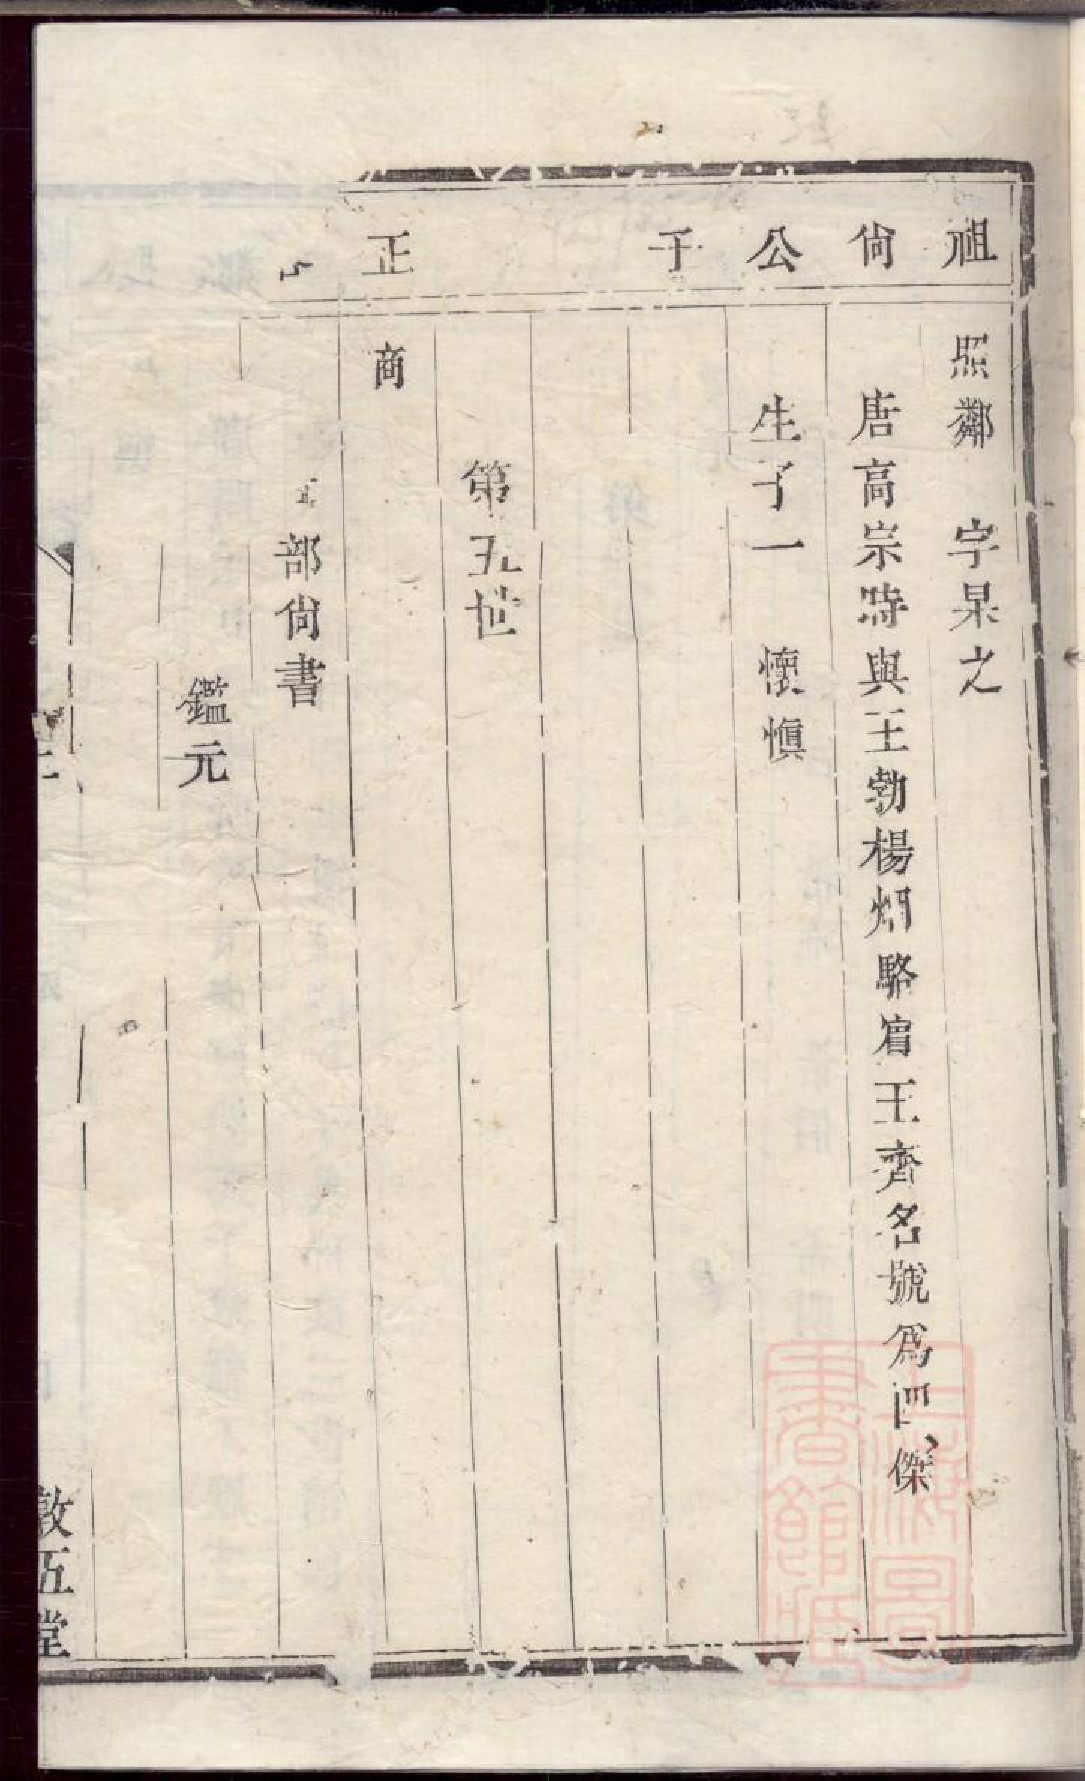 祖尙公子
正
照鄰 字杲之
唐高宗時與王勃楊炯駱賓王齊名號爲四傑
生子一 懷愼
第五世
商
部尙書
鑑元
敦五堂
上海圖
書館藏